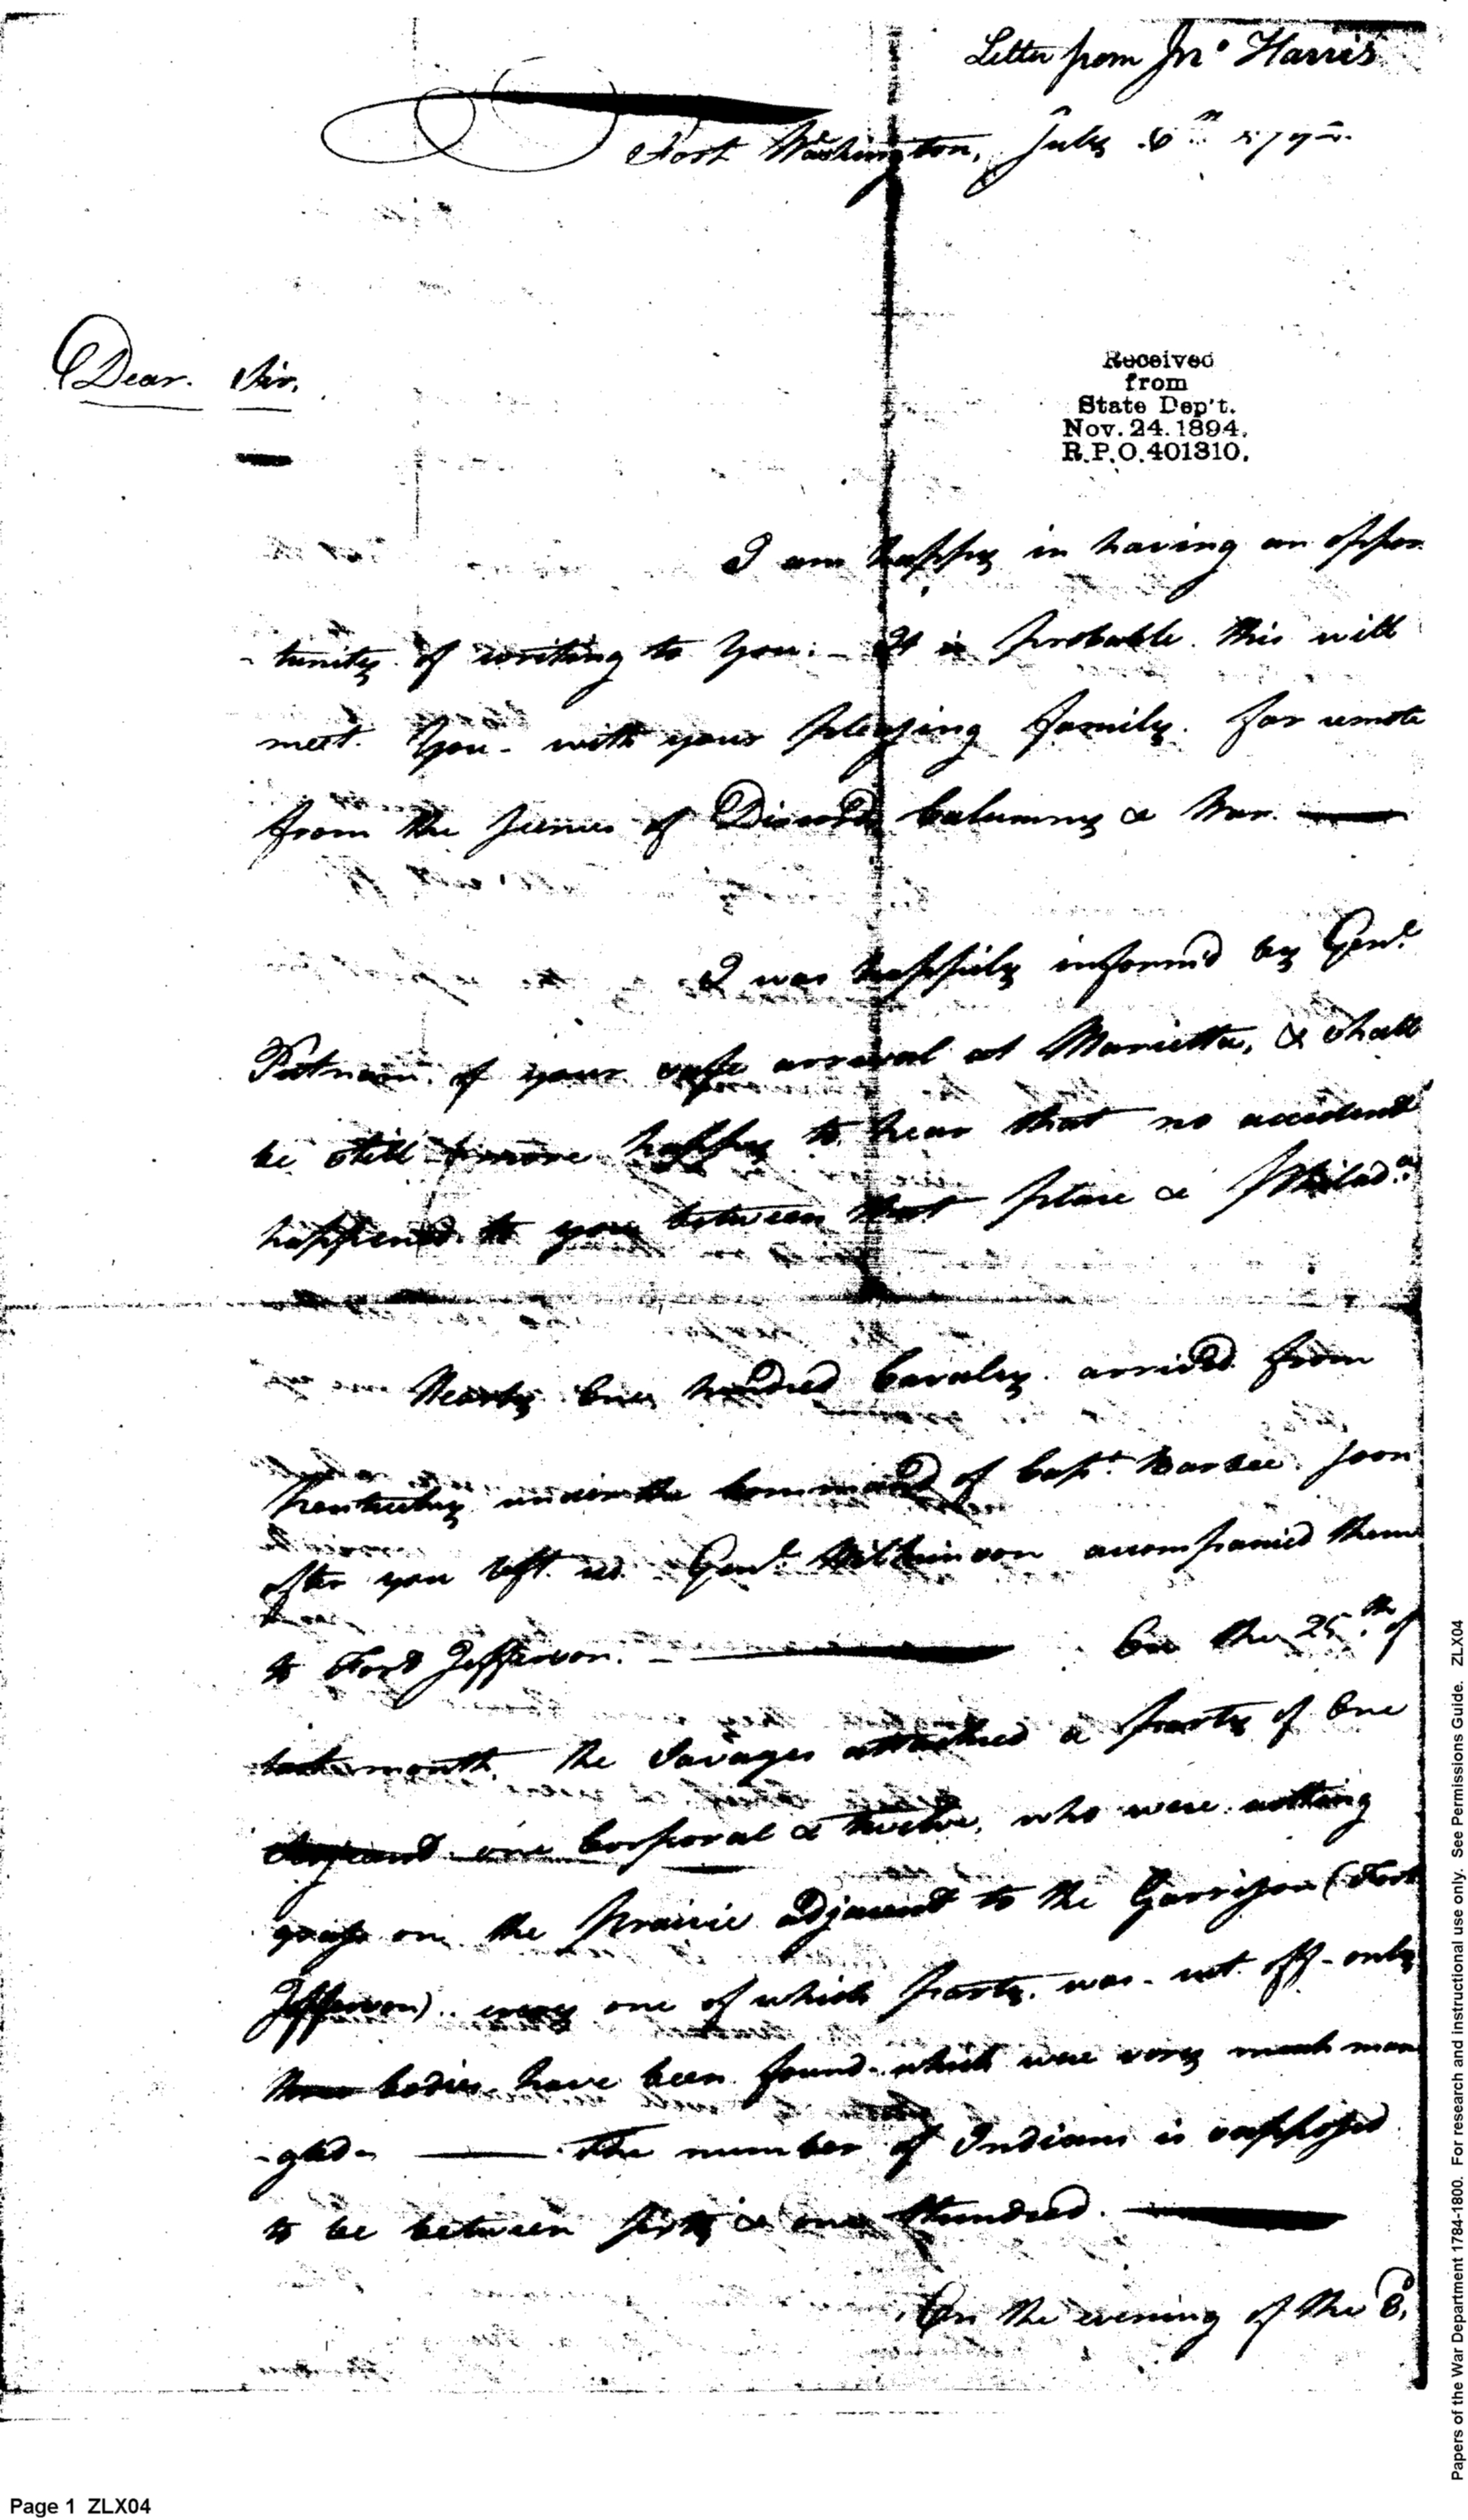 Letter from Jno Harris
Fort Washington, July 6th 1792.
Dear. Sir.
Received
from
State Dep't.
Nov. 24. 1894.
R.P.O. 401310.
I am happy in having an oppor
-tunity of writing to you. - It is probable this will
meet you - with your pleasing family. far remote
from the scenes of Discord, Calumny & War.
I was happily inform'd by Genl
Putnam of your safe arrival at Marietta, & shall
be still more happy to hear that no accident
happened to you between that place & Philada.
Nearly One hundred Cavalry arrived from
Kentucky under the Command of Capt. Barbee soon
after you left us. Genl. Wilkinson accompanied them
to Fort Jefferson. - On the 25th of
last month, the Savages attacked a party of One
Serjeant one Corporal & twelve, who were cutting
grass on the Prairie adjacent to the Garrison (Fort
Jefferson).. every one of which party was cut off - only
bodies have been found - which were very much man
-gled - The number of Indians is supposed
to be between sixty & one Hundred.
On the evening of the 8,
Papers of the War Department 1784-1800. For research and instructional use only. See Permissions Guide. ZLX04
Page 1 ZLX04